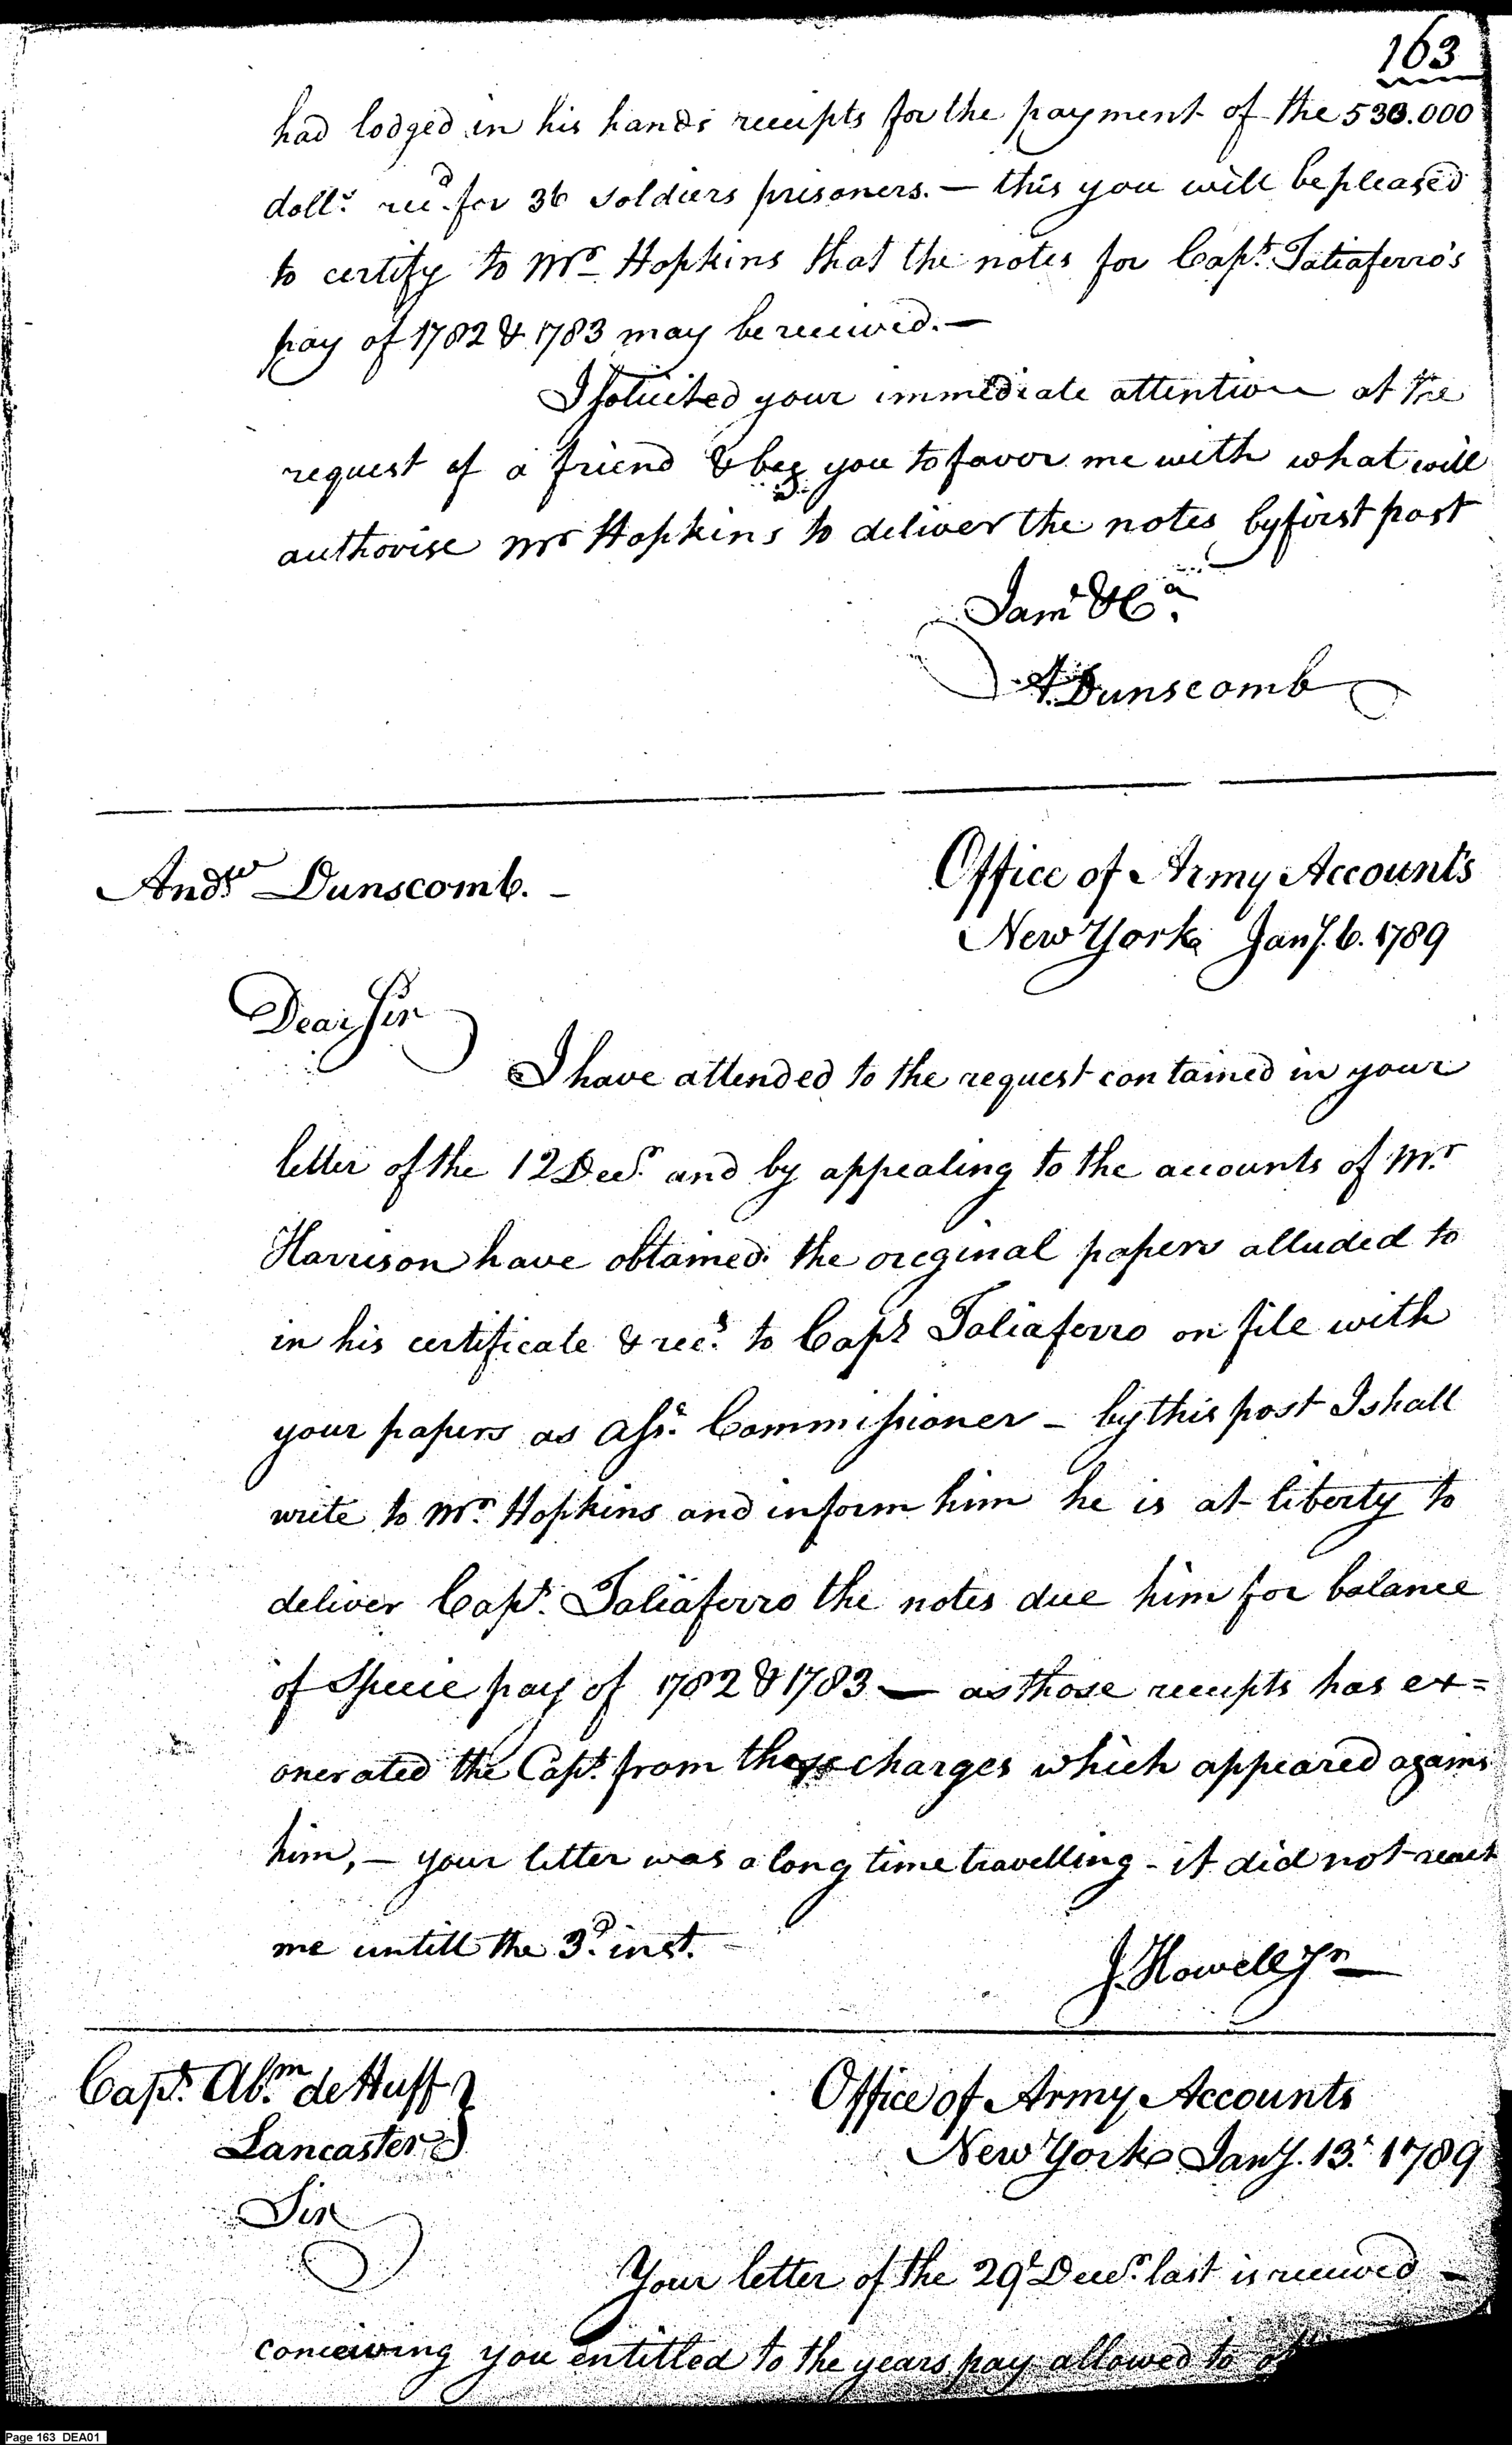 163
had lodged in his hands receipts for the payment of the 530.000
doll.s rec.d for 36 soldiers prisoners. — this you will be pleased
to certify to Mr Hopkins that the notes for Cap.t Taliaferro's
pay of 1782 & 1783 may be received. —
I solicited your immediate attention at the
request of a friend & beg you to favor me with what will
authorise Mr Hopkins to deliver the notes by first post
I am &C.a
A. Dunscomb
And.w Dunscomb. —
Office of Army Accounts
New York Jan.y 6. 1789
Dear Sir
I have attended to the request contained in your
letter of the 12 Dec.r and by appealing to the accounts of M.r
Harrison have obtained the original papers alluded to
in his certificate & rec.s to Cap.t Taliaferro on file with
your papers as Ass.t Commissioner — by this post I shall
write to M.r Hopkins and inform him he is at liberty to
deliver Cap.t Taliaferro the notes due him for balance
of Specie pay of 1782 & 1783 — as those receipts has ex=
onerated the Cap.t from those charges which appeared agains
him, — your letter was a long time travelling - it did not reach
me untill the 3.d inst. —
J. Howell Jr
Cap.t Ab.m de Huff
Lancaster
Office of Army Accounts
New York Jan.y. 13.t 1789
Sir
Your letter of the 29.t Dec.r last is received —
conceiving you entitled to the years pay allowed to
Page 163 DEA01